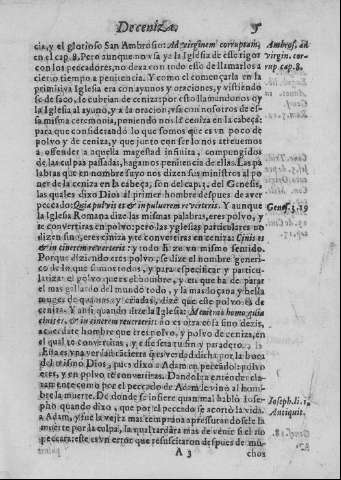 De ceniza. 5
cia, y el glorioso San Ambrosio: Ad virginem corruptam,
en el cap. 8. Pero aunque no vsa ya la Iglesia de esse rigor
con los peccadores, no dexa con todo esso de llamarlos a
cierto tiempo a penitencia. Y como el començarla en la
primitiua Iglesia era con ayunos y oraciones, y vistiendo
se de saco, le cubrian de ceniza: por esto llamandonos oy
la Iglesia al ayuno, y a la oracion, vsa con nosotros de es-
sa misma ceremonia, poniendo nos la ceniza en la cabeça:
para que considerando lo que somos que es vn poco de
poluo y de ceniza, y que junto con ser lo nos atreuemos
a offender a aquella magestad infinita, compungidos
de las culpas passadas, hagamos penitencia de ellas. Las pa
labras que en nombre suyo nos dizen sus ministros al po
ner de la ceniza en la cabeça, son del cap. 3. del Genesis,
las quales dixo Dios al primer hombre despues de auer
peccado: Quia puluis es & in puluerem reuerteris. Y aunque
la Iglesia Romana dize las mismas palabras, eres poluo, y
te conuertiras en poluo: pero las yglesias particulares no
dizen sino, eres ciniza y te conuertiras en ceniza: Cinis es
& in cinerem reuerteris: y todo haze vn mismo sentido.
Porque diziendo eres poluo, se dize el nombre generi-
co de lo que somos todos, y para especificar y particu-
larizar el poluo que es el hombre, y en que ha de parar
el mas gallardo del mundo todo, y la mas loçana y bella
muger de quantas ay criadas, dize que este poluo es de
ceniza. Y ansi quando dize la Iglesia: Memento homo quia
cinis es, & in cinerem reuerteris: no es otra cosa sino dezir,
acuerdate hombre que eres poluo, y poluo de ceniza, en
el qual te conuertiras, y esse sera tu fin y paradero.
Esta es vna verdad tã cierta q̃ es verdad dicha por la boca
del mismo Dios, pues dixo a Adam en peccãdo: poluo
eres, y en poluo te conuertiras. Dandole a entender cla-
ramente como por el peccado de Adam le vino al hom-
bre la muerte. De donde se infiere quan mal hablò Iose-
pho quando dixo, que por el peccado se acortò la vida
a Adam, y fue la vejez mas temprana apresurandosele la
muerte por la culpa, la qual tardara mas de venir si el no
peccara: este es vn error que resuscitaron despues de mu-
A 3 chos
Ambros. ad
virgin. cor-
rup. cap. 8.
Genes. 3. 19
Ioseph. li. 1.
Antiquit.